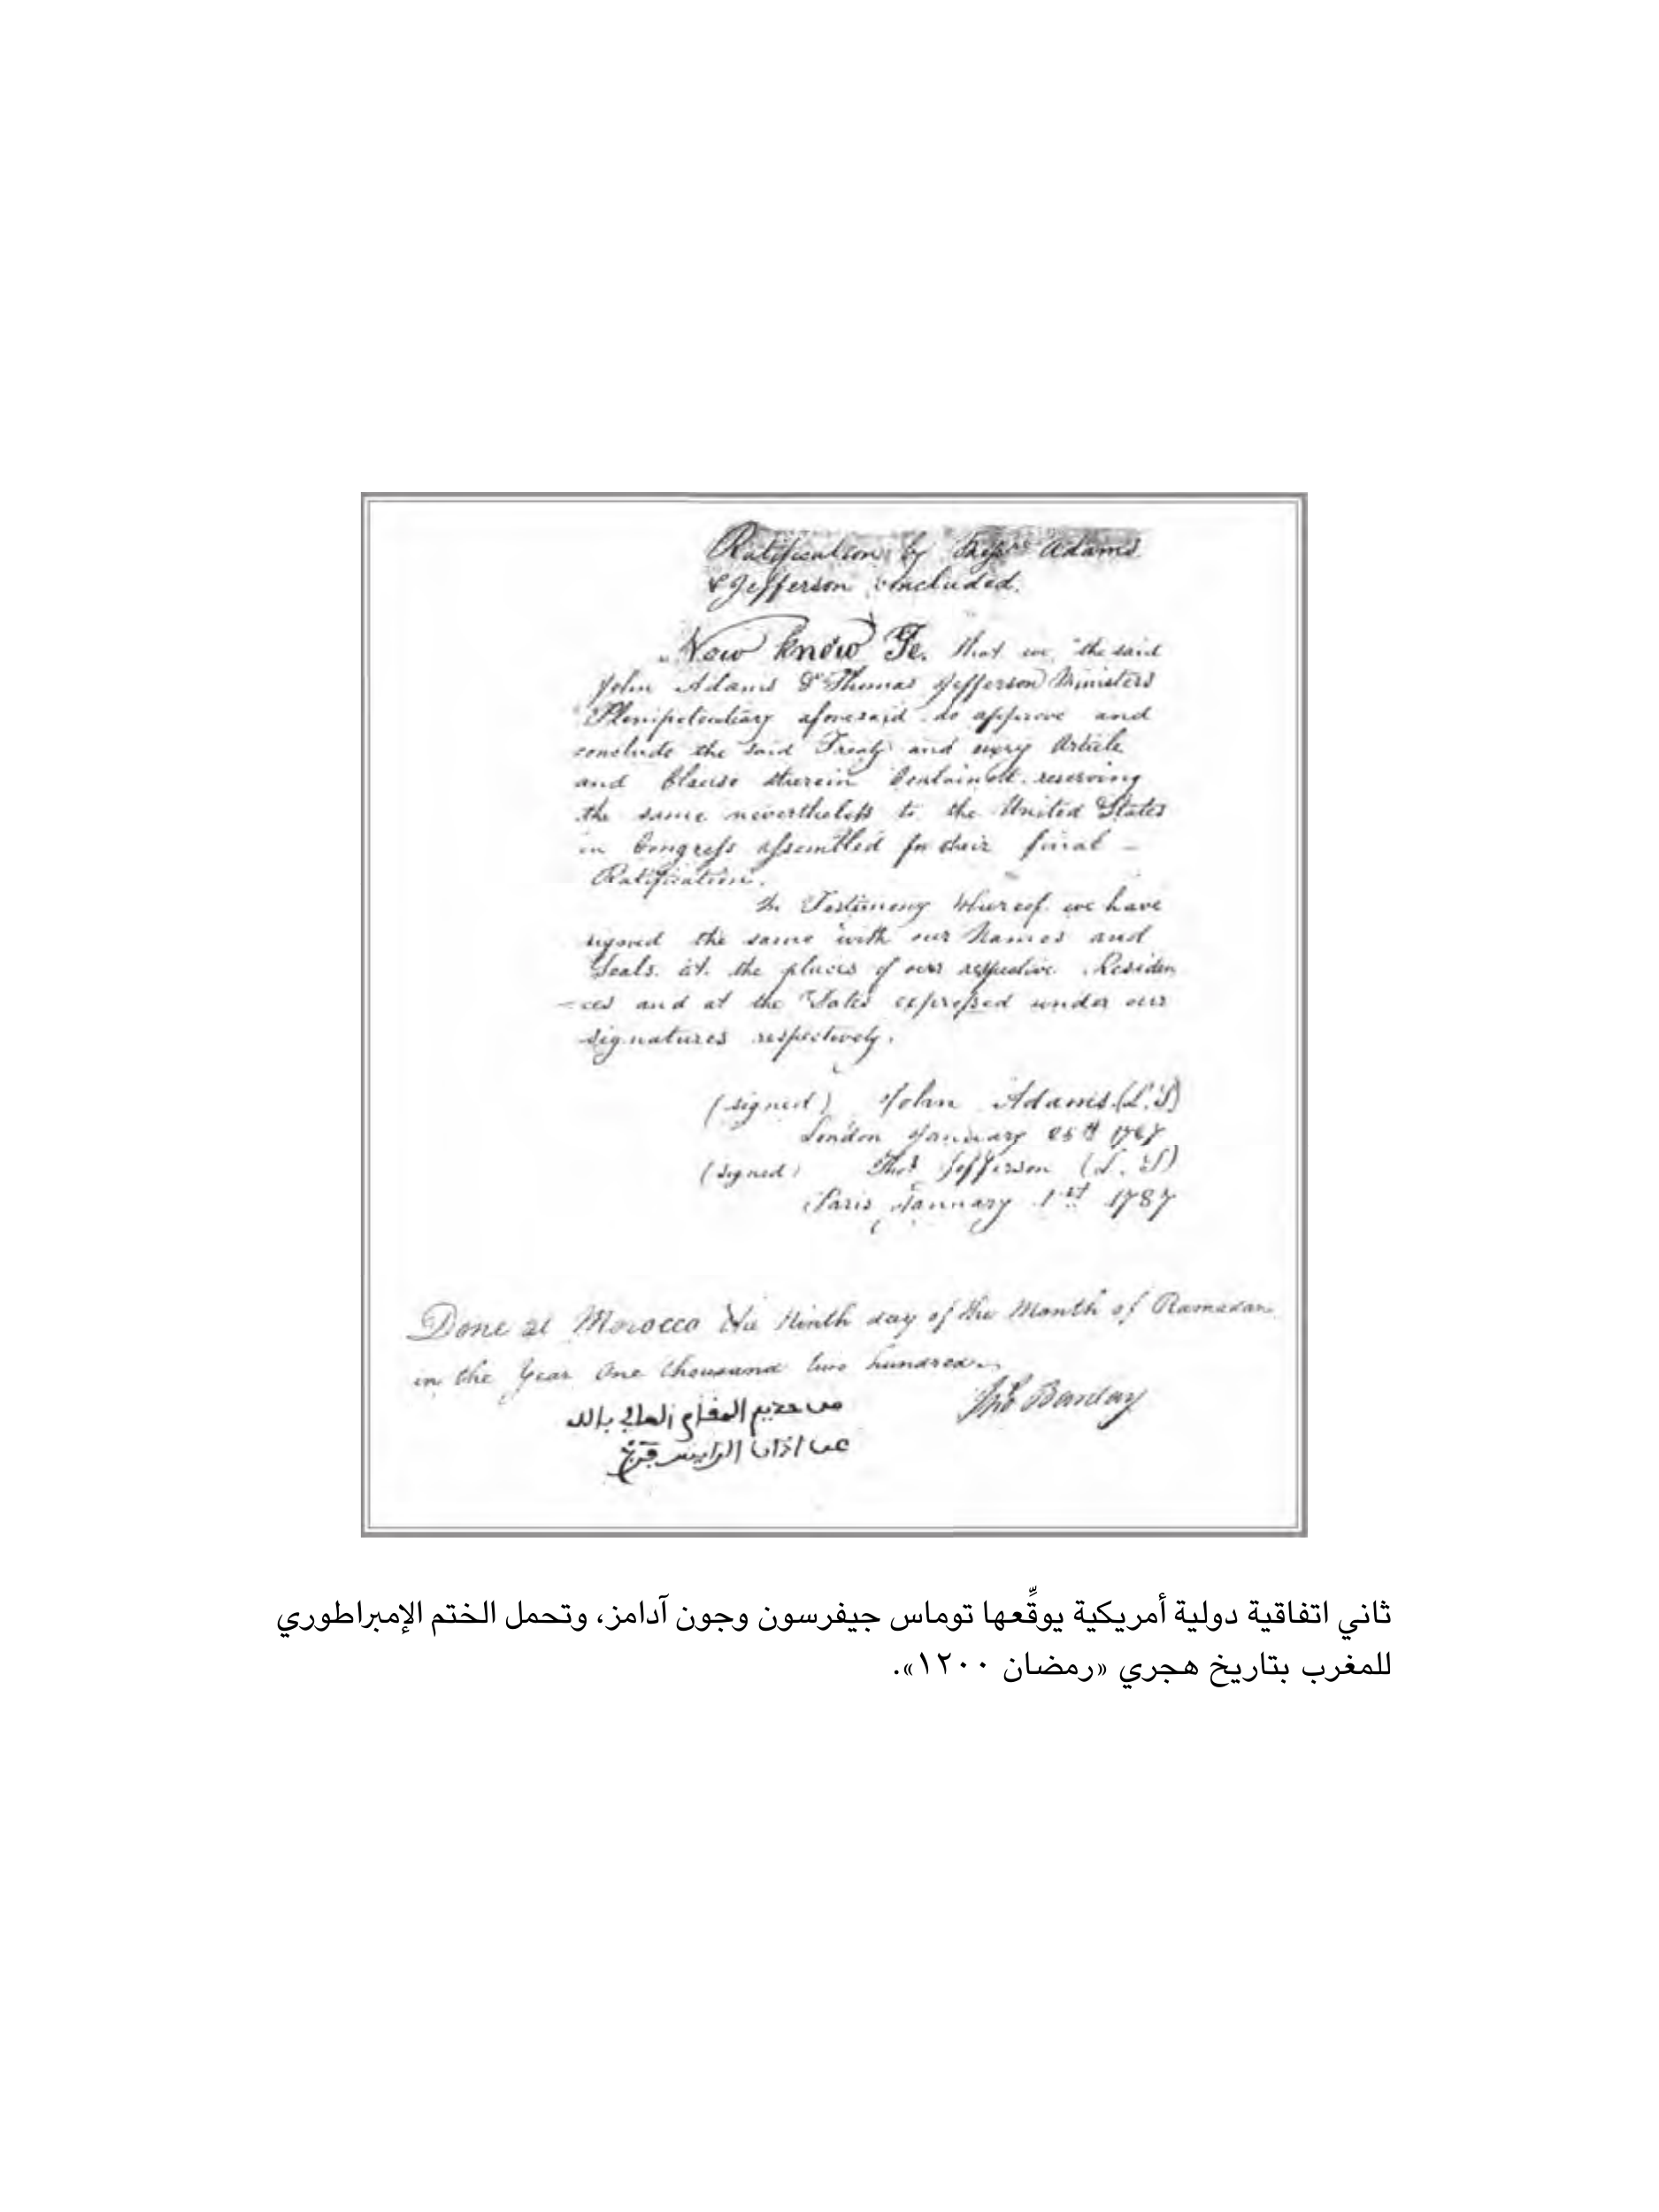 Ratification by Messrs Adams
& Jefferson included.
Now know Ye. that we the said
John Adams & Thomas Jefferson Ministers
Plenipotentiary aforesaid do approve and
conclude the said Treaty and every Article
and Clause therein Contained. reserving
the same nevertheless to the United States
in Congress assembled for their final –
Ratification.
In Testimony Whereof. we have
signed the same with our Names and
Seals. at. the places of our respective Residen
=ces and at the Dates expressed under our
signatures respectively.
(signed) John Adams. (L.S)
London January 25th 1787
(signed) Thos Jefferson (L.S)
Paris January 1st 1787
Done at Morocco the Ninth day of the Month of Ramadan
in the Year One thousand two hundred.
Barclay
ثاني اتفاقية دولية أمريكية يوقِّعها توماس جيفرسون وجون آدامز، وتحمل الختم الإمبراطوري
للمغرب بتاريخ هجري «رمضان ١٢٠٠».